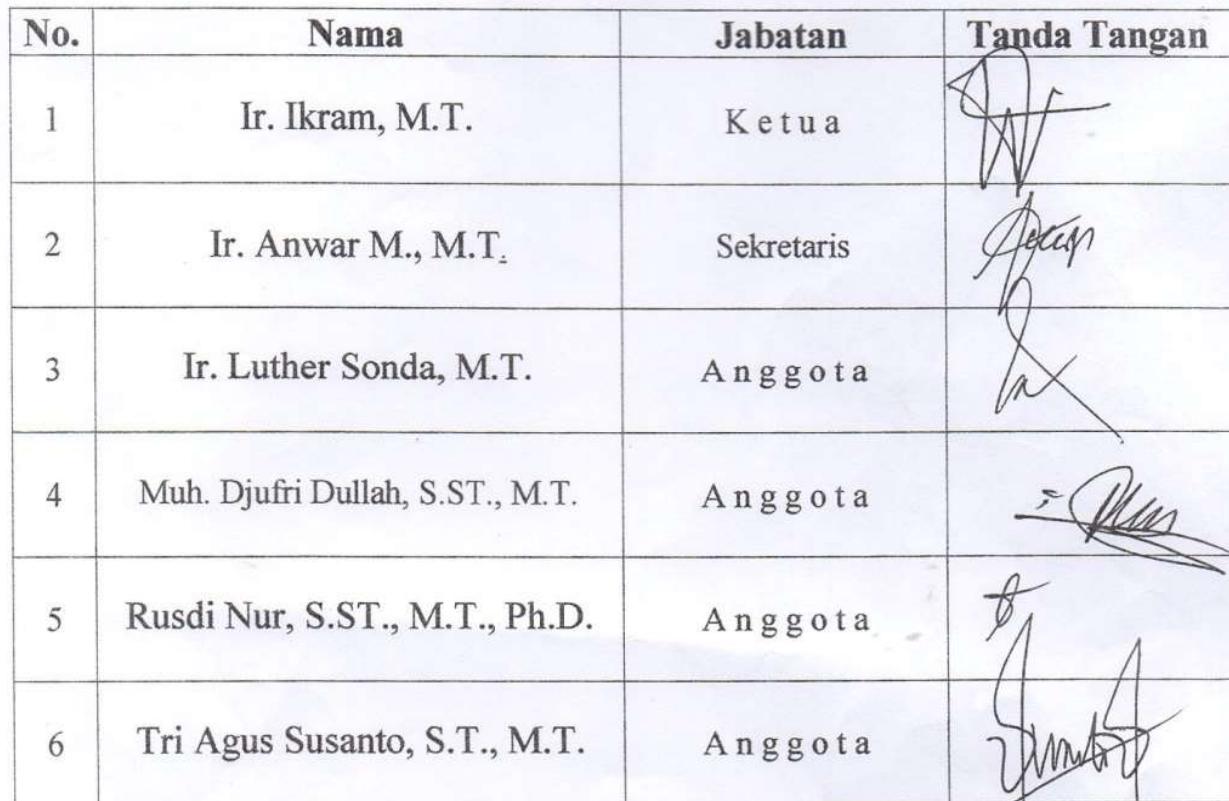 No. Nama Jabatan Tanda Tangan
1 Ir. Ikram, M.T. K e t u a
2 Ir. Anwar M., M.T. Sekretaris
3 Ir. Luther Sonda, M.T. A n g g o t a
4 Muh. Djufri Dullah, S.ST., M.T. A n g g o t a
5 Rusdi Nur, S.ST., M.T., Ph.D. A n g g o t a
6 Tri Agus Susanto, S.T., M.T. A n g g o t a